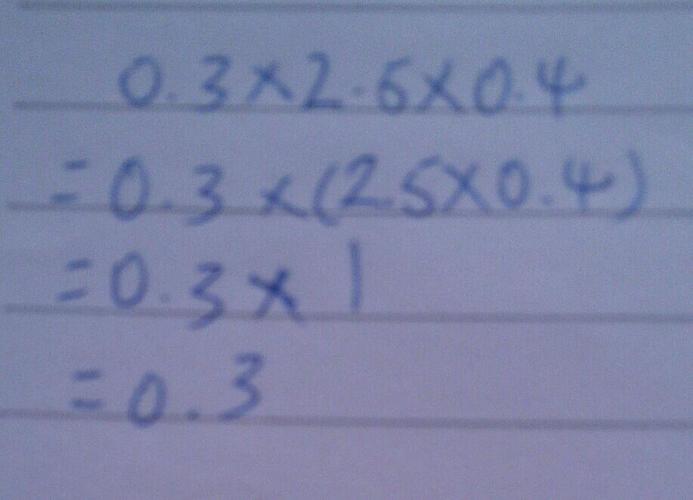 0.3×2.5×0.4
=0.3×(2.5×0.4)
=0.3×1
=0.3